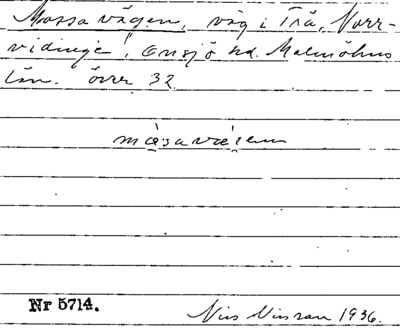 Mossavägen, väg i Trä, Norr-
vidinge, Onsjö hd. Malmöhus
län. övre 32
Nr 5714.
Nils Nilsson 1936.